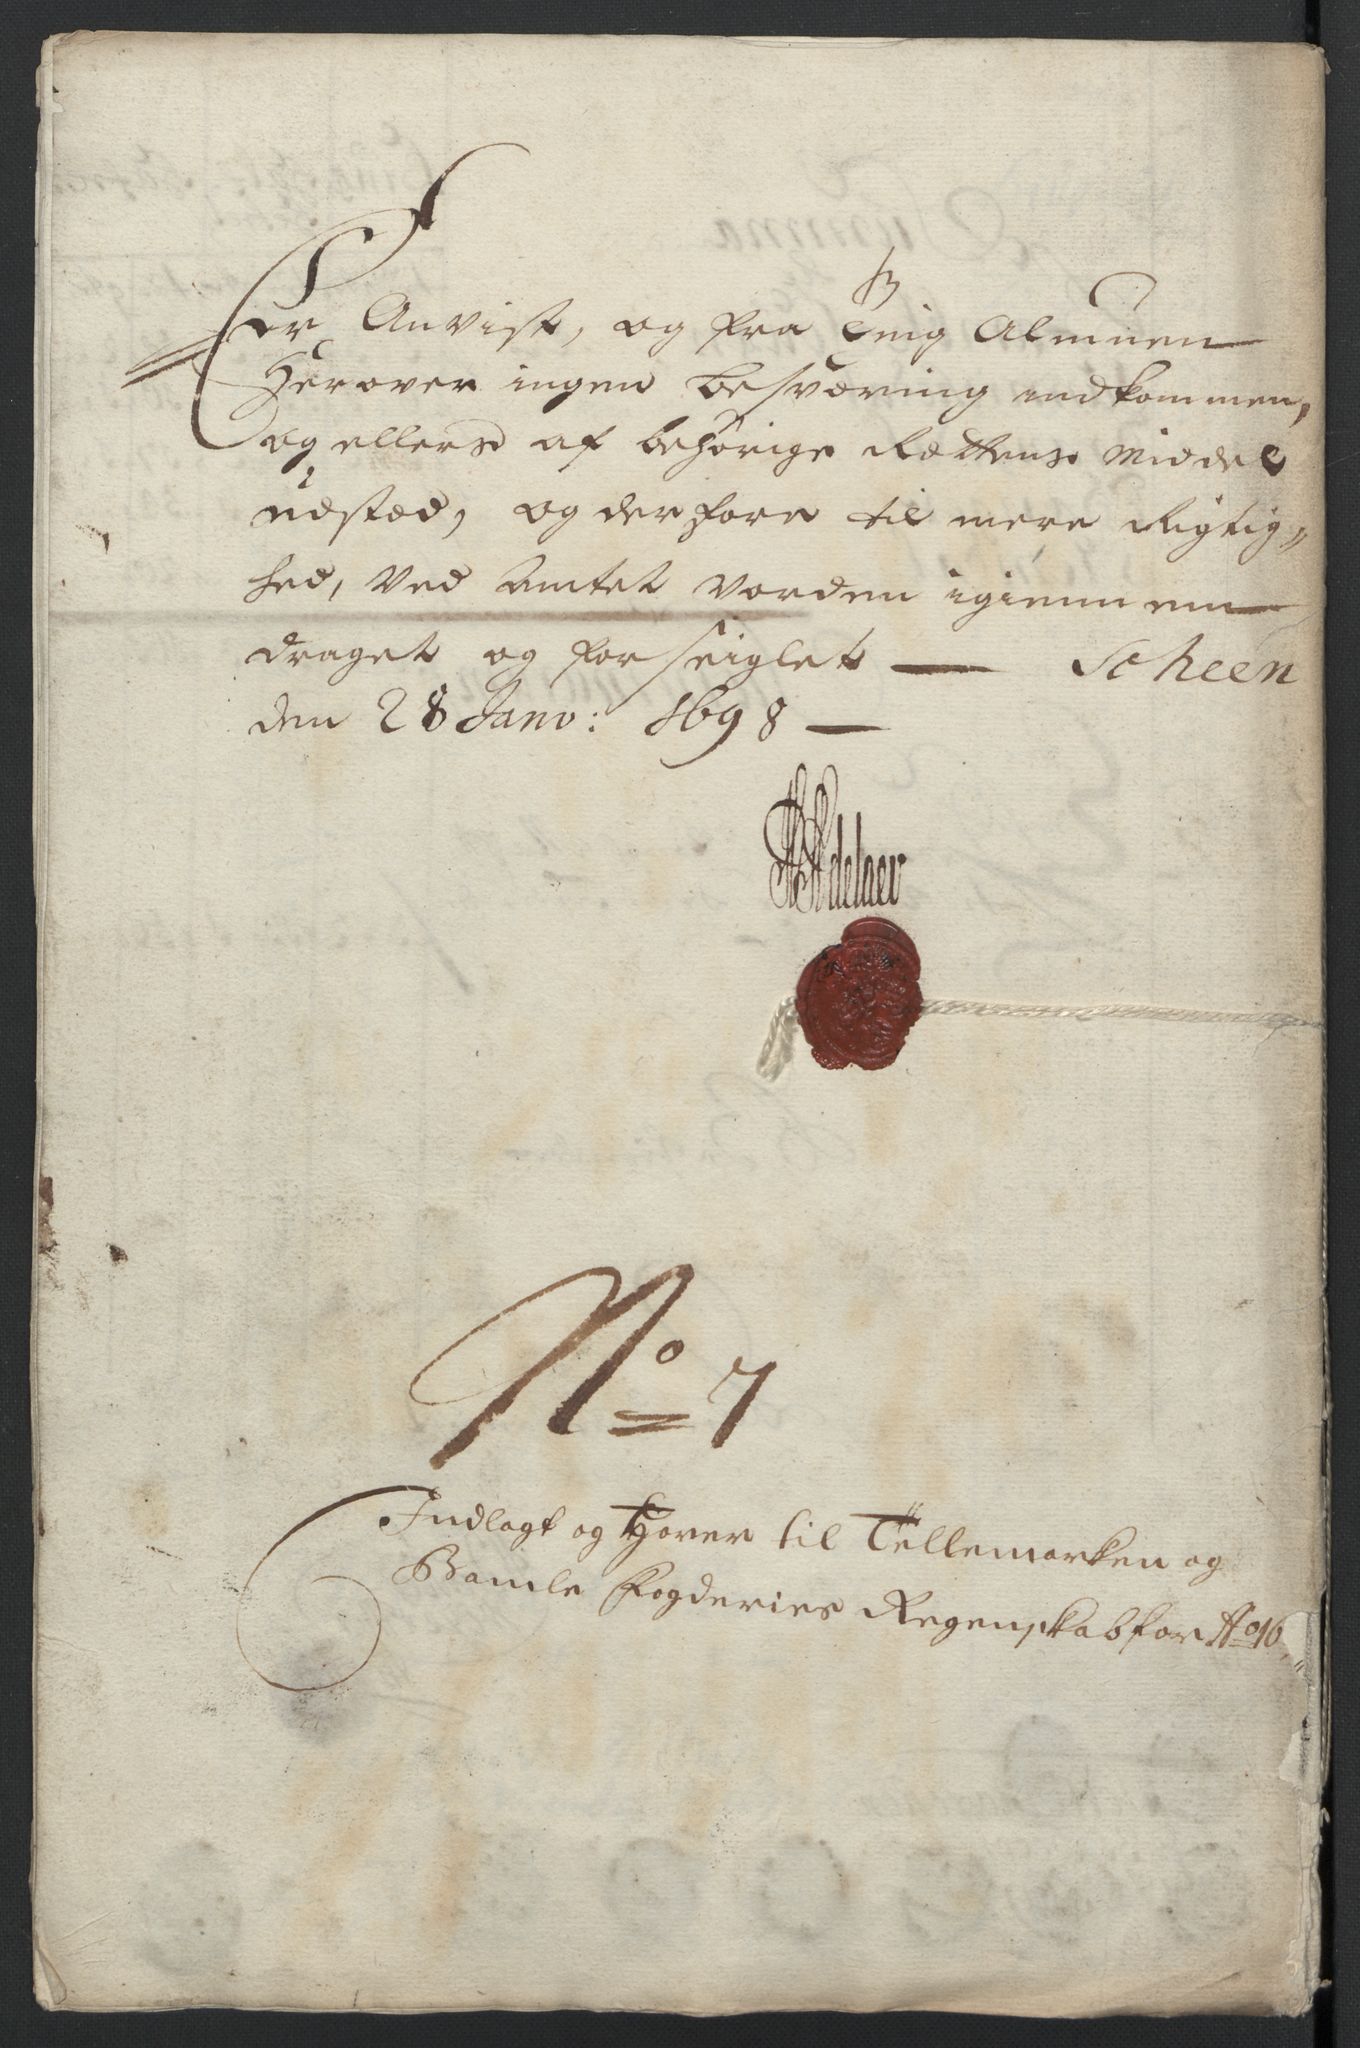 Er Anvist, og fra Menig Almuen
Herover ingen besværing indkommen,
og ellers af behørige Rættens Middel
udstæd, og derfore til mere Rigtig
hed, Ved Amtet vorden igiennem
draget og forseiglet — Scheen
den 28 Janv: 1698 —
Adelaer
No 7
Indlagt og hører til Tellemarken og
Bamle Fogderies Regenskab for Ao 16